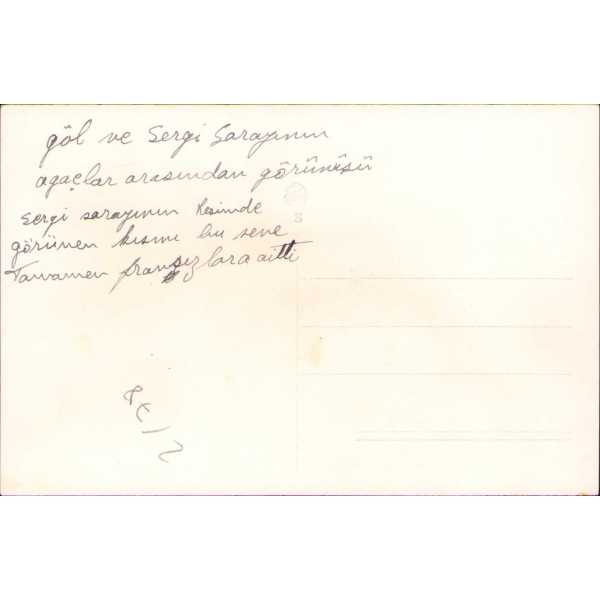 göl ve Sergi Sarayının
agaçlar arasından görünüsü
Sergi sarayının Resimde
görünen kısmı bu sene
Tamamen fransızlara aitti